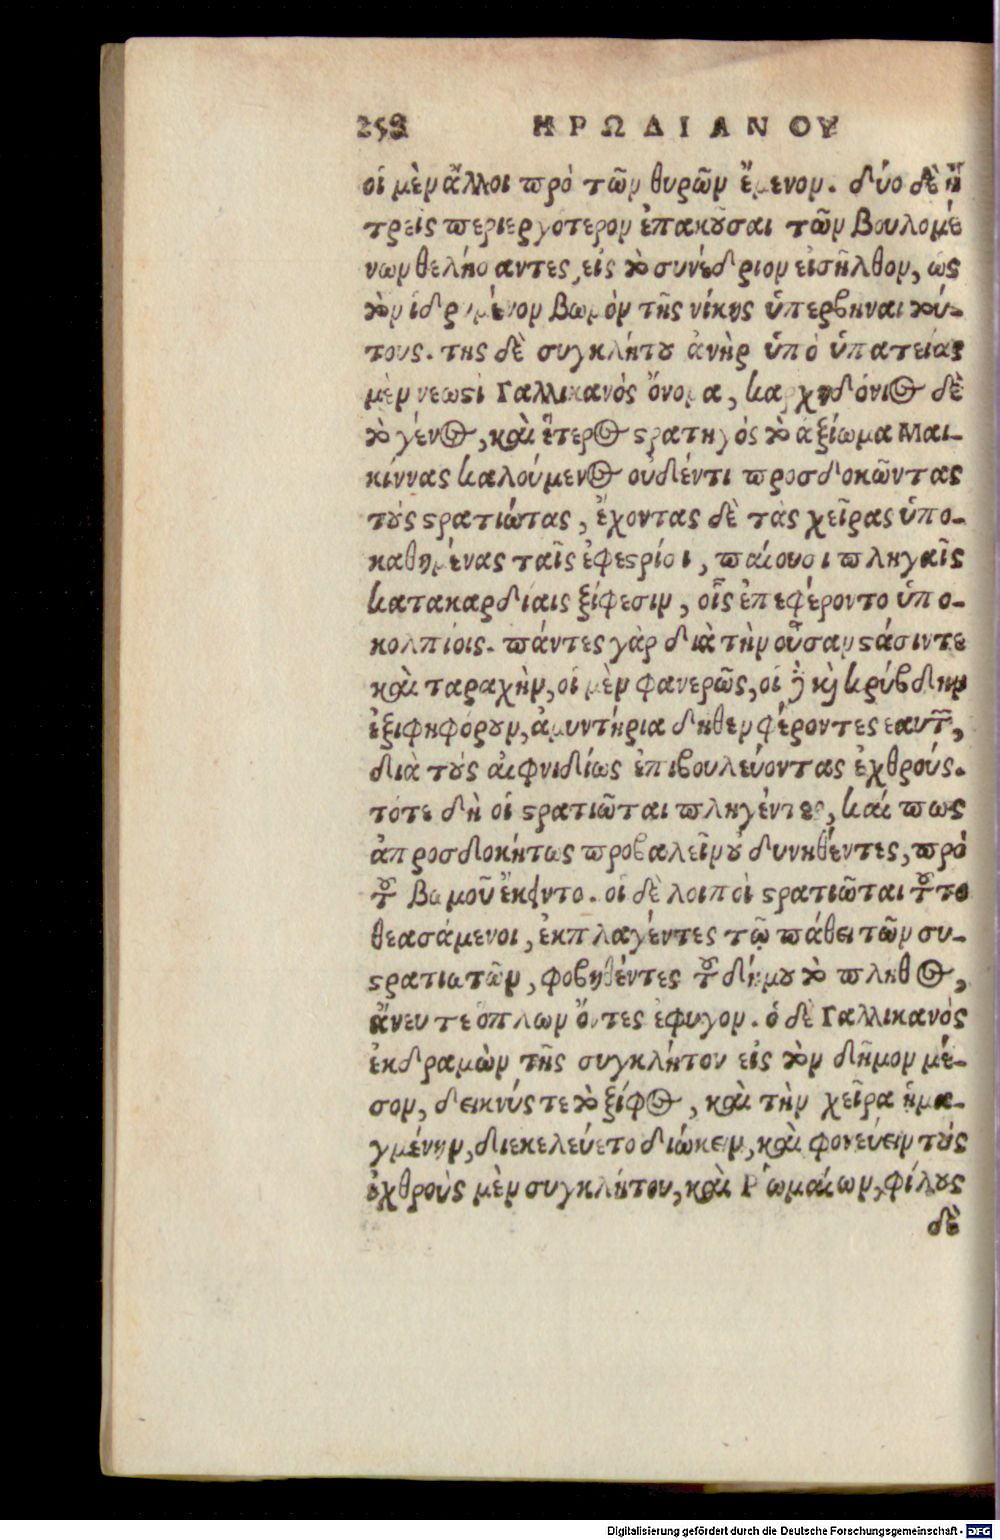 258 ΗΡΩΔΙΑΝΟΥ
οἱ μὲν ἄλλοι πρὸ τῶν θυρῶν ἔμενον. δύο δὲ ἢ
τρεῖς περιεργότερον ἐπακοῦσαι τῶν βουλομέ
νων θελήσαντες, εἰς τὸ συνέδριον εἰσῆλθον, ὡς
τὸν ἱδρυμένον βωμὸν τῆς νίκης ὑπερβῆναι τού-
τους. τῆς δὲ συγκλήτου ἀνὴρ ὑπὸ ὑπατείας
μὲν νεωστὶ Γαλλικανὸς ὄνομα, καρχηδόνιος δὲ
τὸ γένος, καὶ ἕτερος στρατηγὸς τὸ ἀξίωμα Μαι-
κίννας καλούμενος οὐδέντι προσδοκῶντας
τοὺς στρατιώτας, ἔχοντας δὲ τὰς χεῖρας ὑπο-
καθημένας ταῖς ἐφεστρίσι, παίουσι πληγαῖς
κατακαρδίαις ξίφεσιν, οἷς ἐπεφέροντο ὑπο-
κολπίοις. πάντες γὰρ διὰ τὴν οὖσαν στάσιν τε
καὶ ταραχὴν, οἱ μὲν φανερῶς, οἱ δὲ καὶ κρύβδην
ἐξιφηφόρουν, ἀμυντήρια δῆθεν φέροντες ἑαυτῶν,
διὰ τοὺς αἰφνιδίως ἐπιβουλεύοντας ἐχθρούς.
τότε δὴ οἱ στρατιῶται πληγέντες, καί πως
ἀπροσδοκήτως προβαλεῖν οὐ δυνηθέντες, πρὸ
τοῦ βωμοῦ ἔκειντο. οἱ δὲ λοιποὶ στρατιῶται τοῦτο
θεασάμενοι, ἐκπλαγέντες τῷ πάθει τῶν συ-
στρατιωτῶν, φοβηθέντες τοῦ δήμου τὸ πλῆθος,
ἄνευ τε ὅπλων ὄντες ἔφυγον. ὁ δὲ Γαλλικανὸς
ἐκδραμὼν τῆς συγκλήτου εἰς τὸν δῆμον μέ-
σον, δεικνύς τε τὸ ξίφος, καὶ τὴν χεῖρα ᾑμα-
γμένην, διεκελεύετο διώκειν, καὶ φονεύειν τοὺς
ἐχθροὺς μὲν συγκλήτου, καὶ Ῥωμαίων, φίλους
δὲ
Digitalisierung gefördert durch die Deutsche Forschungsgemeinschaft - DFG